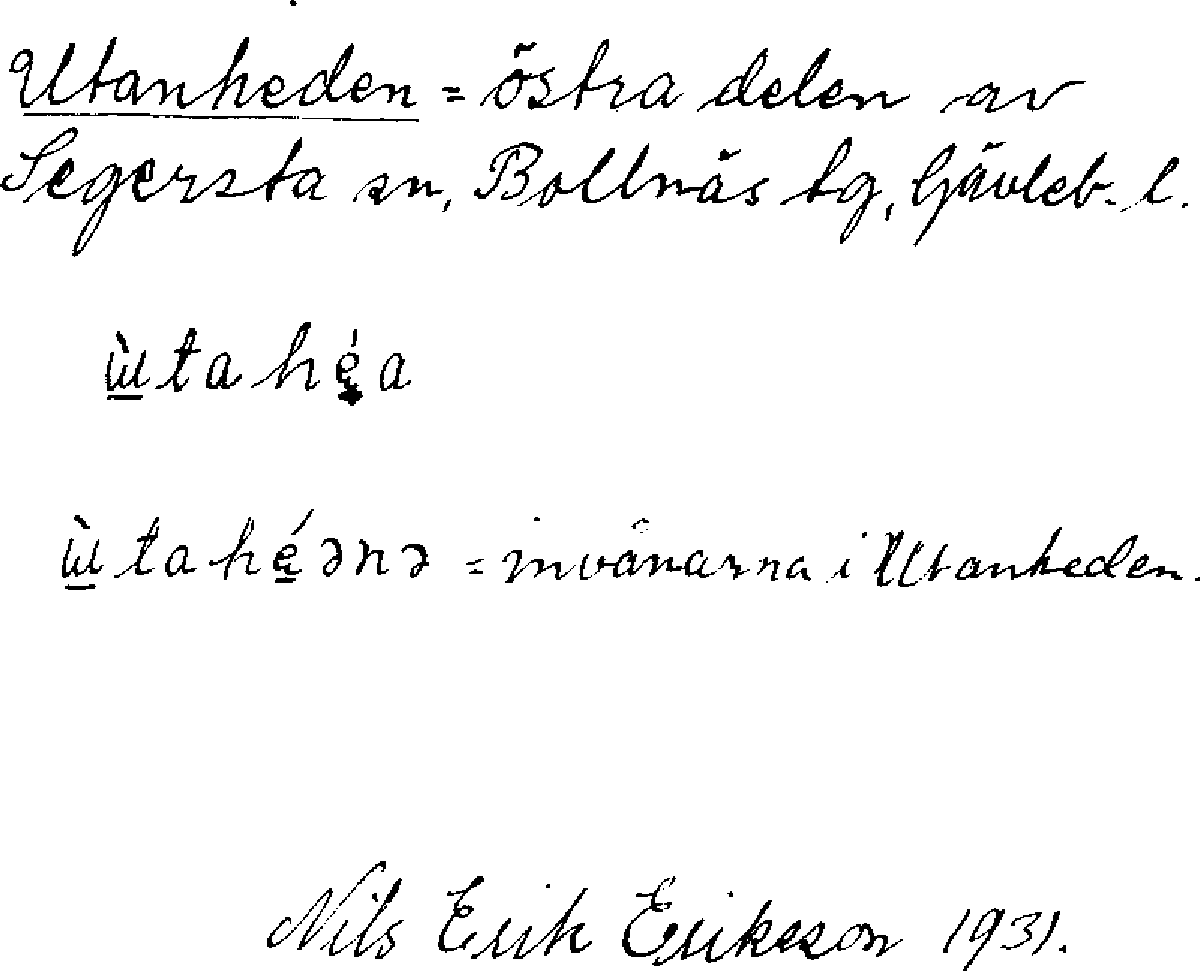 Utanheden = östra delen av
Segersta sn, Bollnäs tg, Gävleb. l.
ɯ̠̀tahé̠a
ɯ̠̀tahé̠ənə = invånarna i Utanheden.
Nils Erik Eriksson 1931.